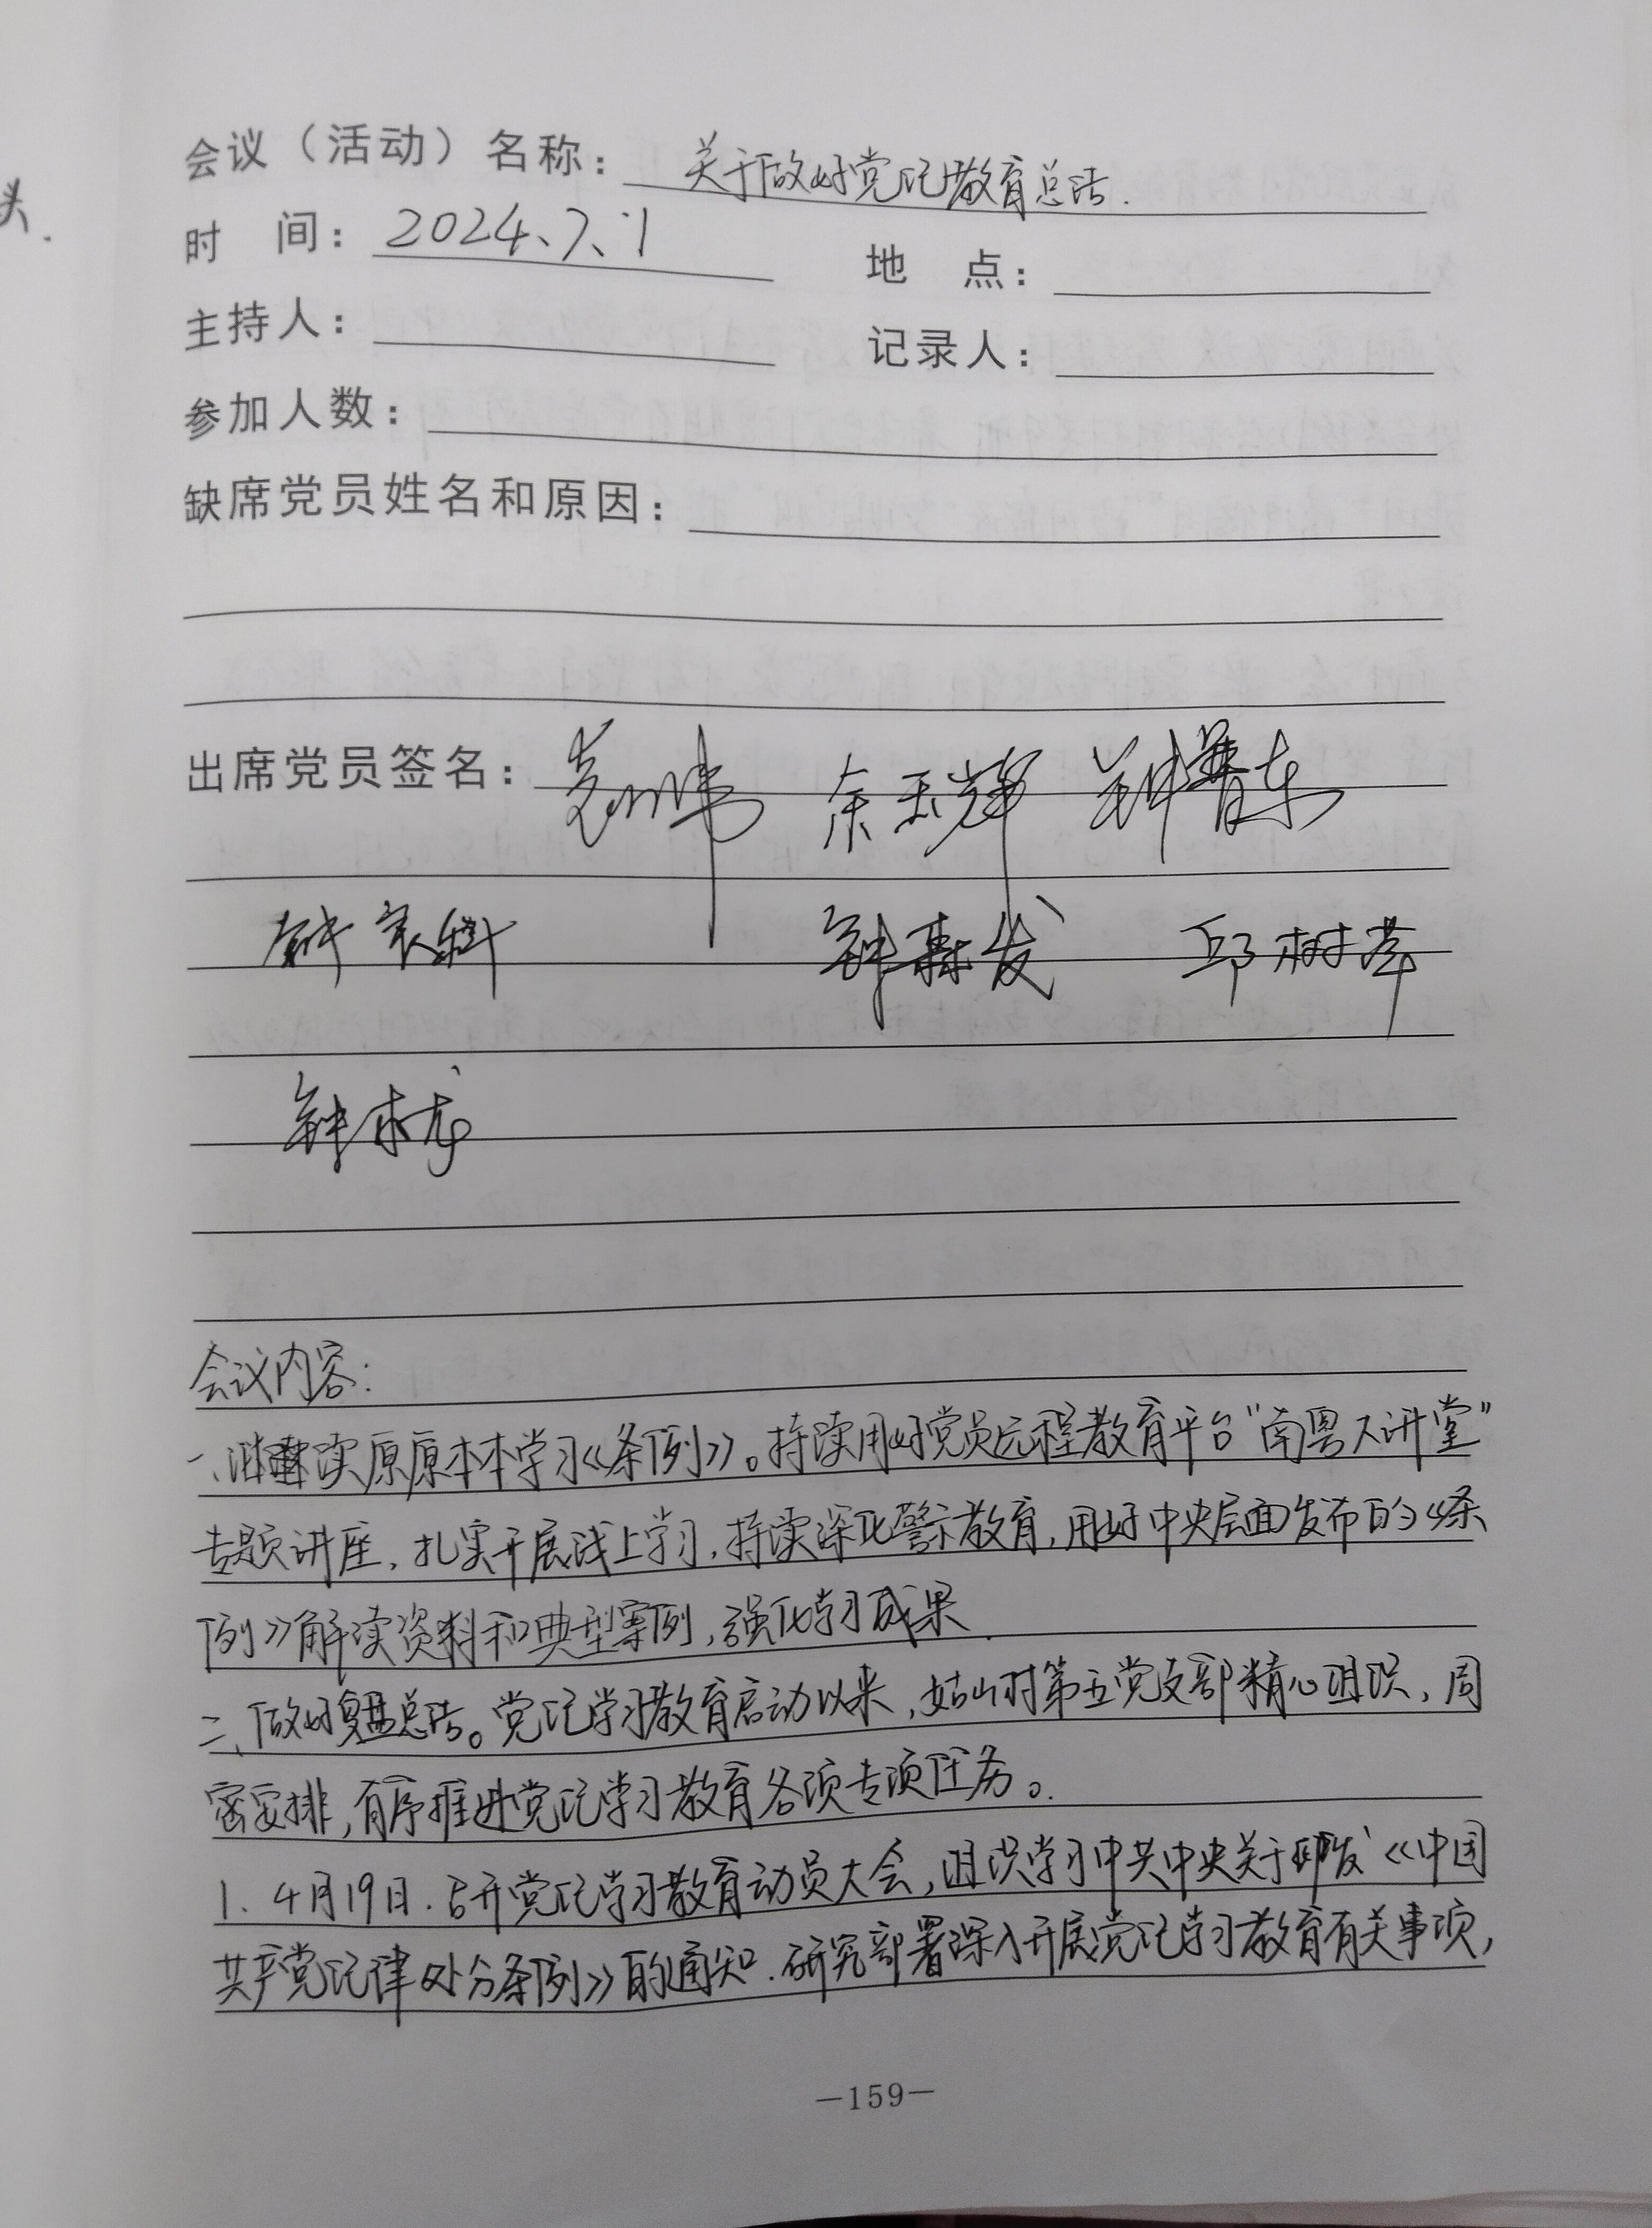 头.
会议（活动）名称： 关于做好党纪教育总结.
时 间：2024、7、1 地 点：
主持人： 记录人：
参加人数：
缺席党员姓名和原因：
出席党员签名： 余玉辉 钟晋东
钟 钟森发 邱树苹
钟木龙
会议内容：
一、 读原原本本学习《条例》。持续用好党员远程教育平台“南粤大讲堂”
专题讲座，扎实开展线上学习，持续深化警示教育，用好中央层面发布的《条
例》解读资料和典型案例，强化学习成果.
二、做好复盘总结。党纪学习教育启动以来，姑山村第五党支部精心组织，周
密安排，有序推进党纪学习教育各项专项任务。
1、4月19日.召开党纪学习教育动员大会，组织学习中共中央关于印发《中国
共产党纪律处分条例》的通知.研究部署深入开展党纪学习教育有关事项，
—159—